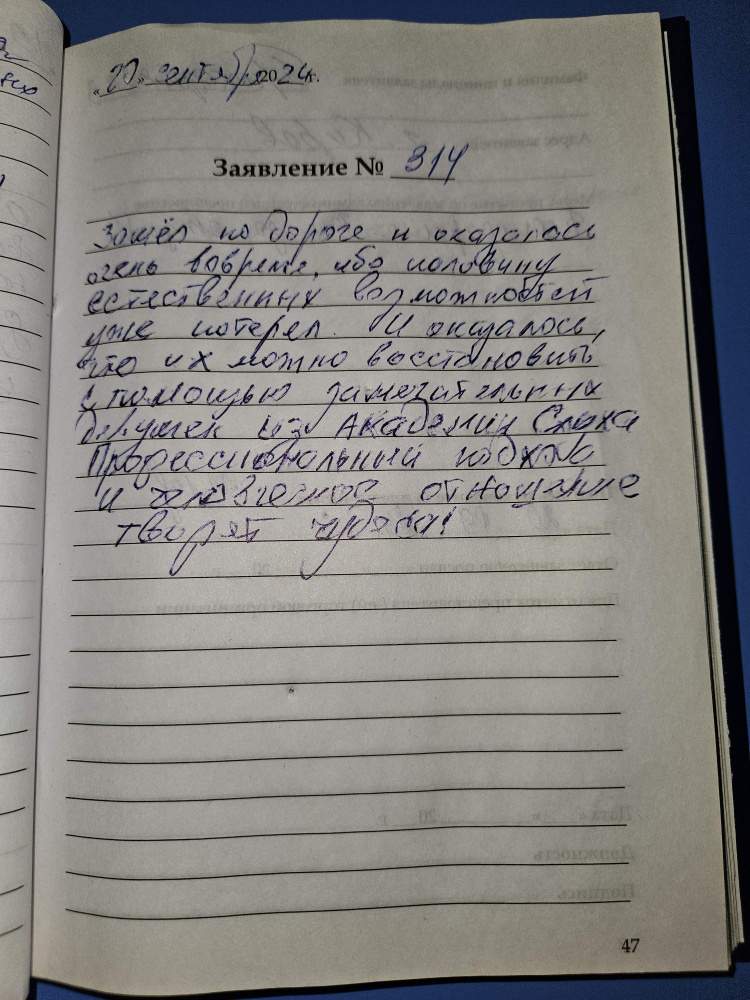 «20» сентября 2024г.
Заявление № 314
Зашёл по дороге и оказалось
очень вовремя, ибо половину
естественных возможностей
уже потерял. И оказалось,
что их можно восстановить
с помощью замечательных
девушек из Академии Слуха
Профессиональный подход
и человеческое отношение
творят чудеса!
47